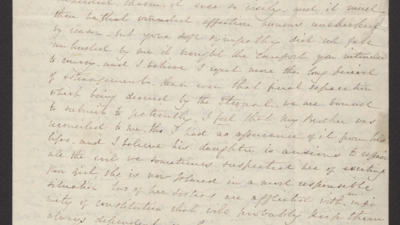 them it ever so wisely, and it must
then be that wounded affection
by reason. but your soft sympathy did not fall
unheeded by me it brought the comfort you intended
to convey, and I believe I regret more the long period
of estrangement than even that final separation
which being decreed by the Eternal we are bound
to submit to patiently. I feel that my Brother was
reconciled to me, tho' I had no assurance of it from his
lips. and I believe his daughter is anxious to repair
all the evil we sometimes suspected her of exciting
poor Girl, she is now placed in a most responsible
situation two of her Sisters are afflicted with
of constitution that will probably keep them
always dependent